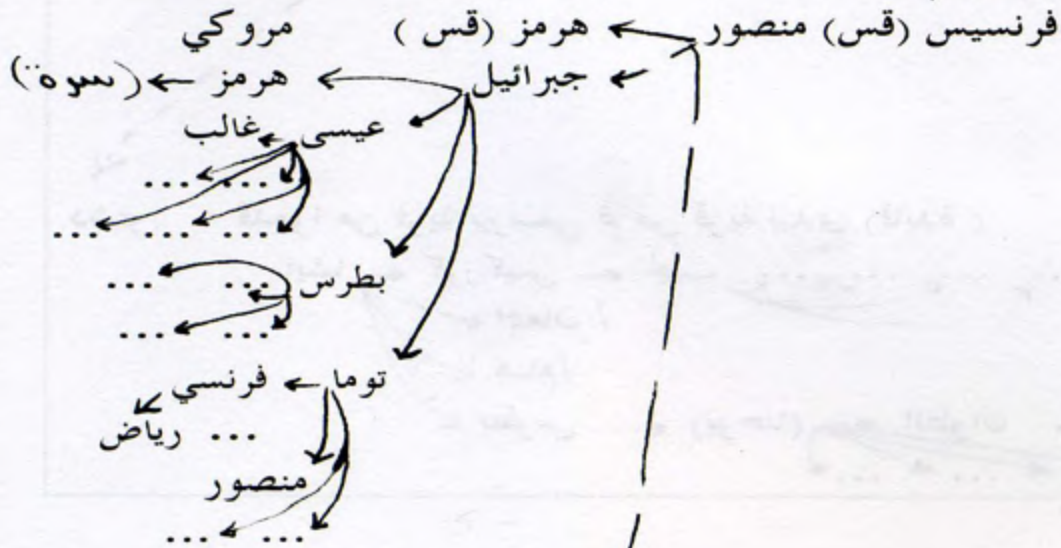 فرنسيس (قس) منصور ← هرمز (قس) مروكي
جبرائيل ← هرمز ←
عيسى ← غالب
... ...
... ... ...
بطرس ... ...
... ...
توما ← فرنسي
... رياض
منصور
... ...